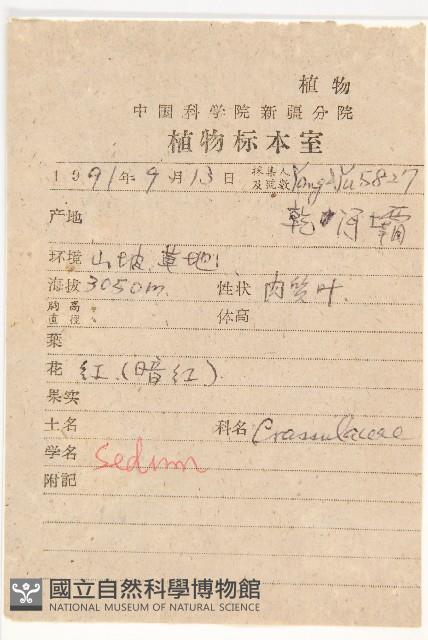 植物
中国科学院新疆分院
植物标本室
1991年9月13日 採集人及号数 Yang 5827
产地
环境 山坡草地
海拔 3050m. 性状 肉質叶.
胸高直径 体高
葉
花 红(暗红).
果实
土名 科名 Crassulaceae
学名 Sedum
附記
國立自然科學博物館
NATIONAL MUSEUM OF NATURAL SCIENCE